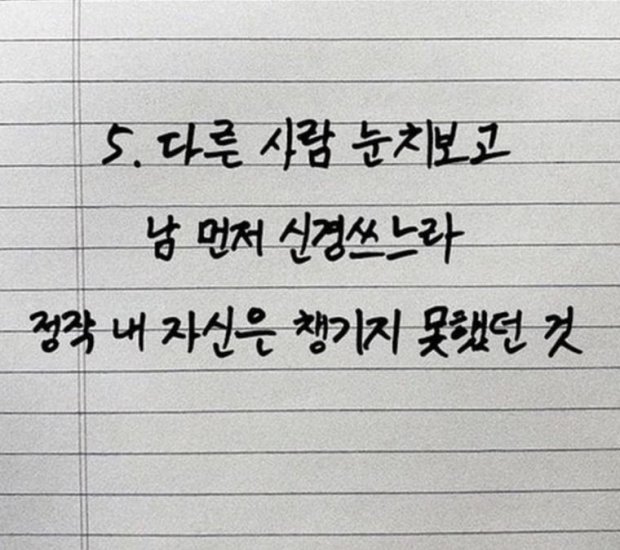 5. 다른 사람 눈치보고
남 먼저 신경쓰느라
정작 내 자신은 챙기지 못했던 것